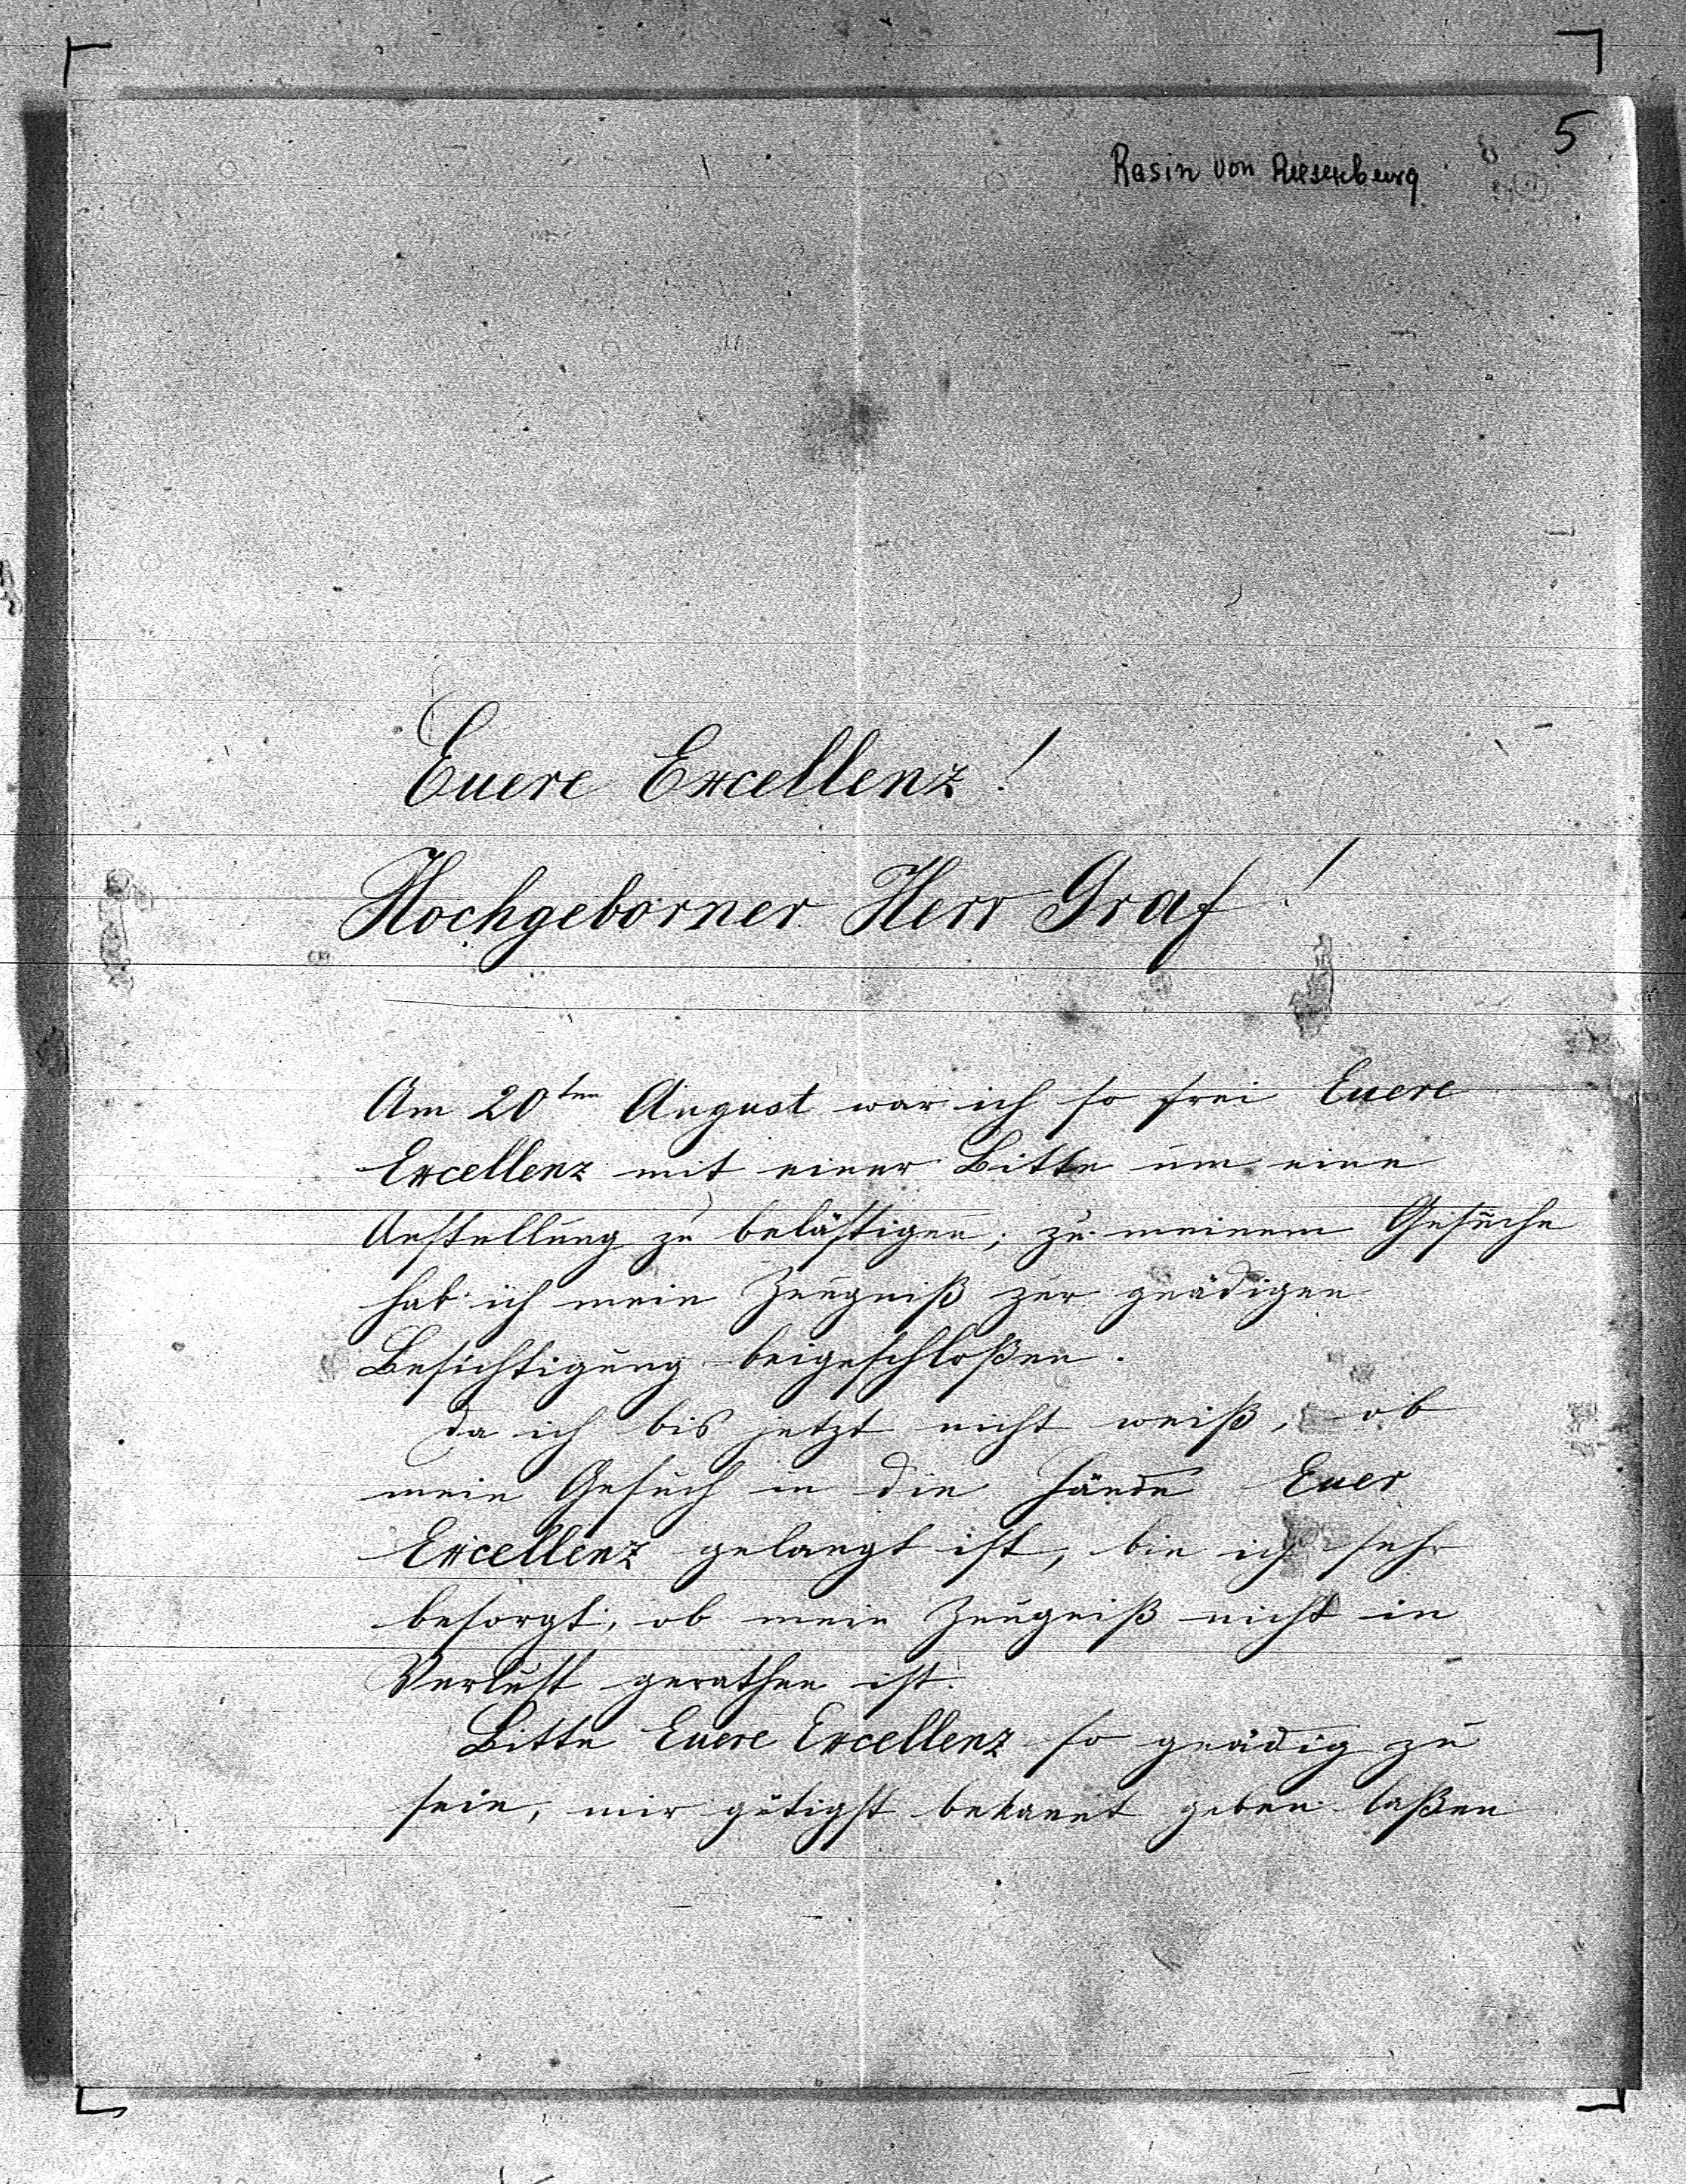 5
Rasin von Riesenburg
Euere Excellenz!
Hochgeborner Herr Graf!
Am 20ten August war ich so frei Euere
Excellenz mit einer Bitte um eine
Anstellung zu belästigen; zu meinem Gesuche
hab ich mein Zeugniß zur gnädigen
Besichtigung beigeschloßen.
Da ich bis jetzt nicht weiß, ob
mein Gesuch in die Hände Euer
Excellenz gelangt ist, bin ich sehr
besorgt, ob mein Zeugniß nicht in
Verlust gerathen ist.
Bitte Euere Excellenz so gnädig zu
sein, mir gütigst bekannt geben laßen